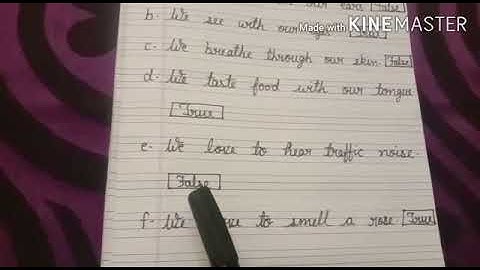 our ears False
Made with KINEMASTER
b. We see with our
c. We breathe through our skin. False
d. We taste food with our tongue
True
e. We love to hear traffic noise.
False
f. We to smell a rose. True